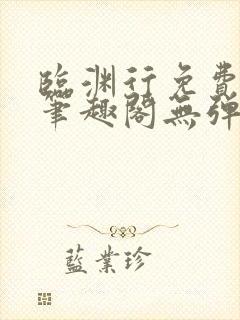 臨淵行免費
筆趣閣無彈
藍業珍